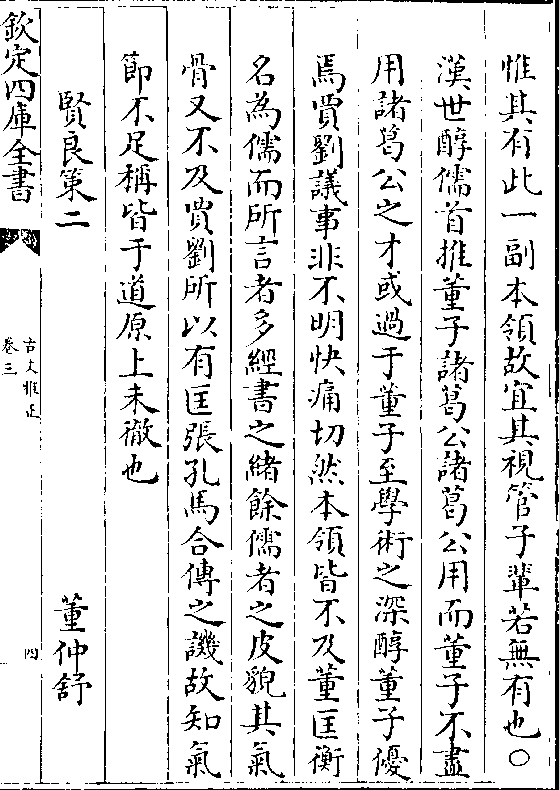 惟其有此一副本領故宜其視管子輩若無有也○
漢世醇儒首推董子諸葛公諸葛公用而董子不盡
用諸葛公之才或過于董子至學術之深醇董子優
焉賈劉議事非不明快痛切然本領皆不及董匡衡
名為儒而所言者多經書之緒餘儒者之皮貌其氣
骨又不及賈劉所以有匡張孔馬合傳之譏故知氣
節不足稱皆于道原上未徹也
賢良策二 董仲舒
欽定四庫全書
古文雅正
卷三
四